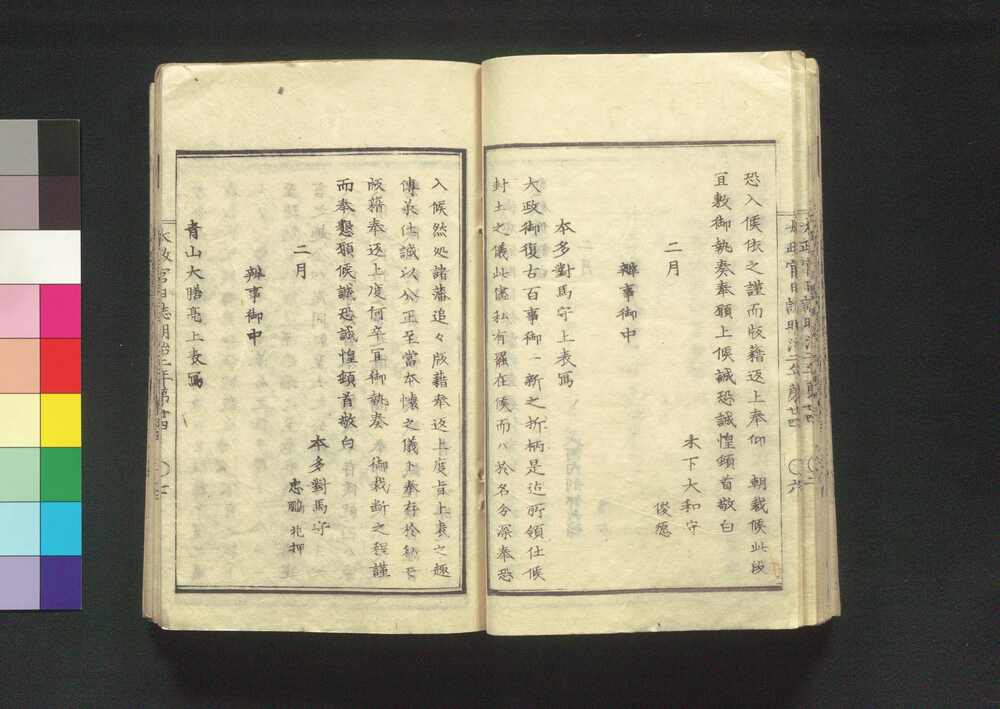 恐入候依之謹而版籍返上奉仰　朝裁候此段
宜敷御執奏奉願上候誠恐誠惶頓首敬白
木下大和守
俊愿
二月
辨事御中
本多對馬守上表寫
大政御復古百事御一新之折柄是迄所領仕候
封土之儀此儘私有罷在候而ハ於名分深奉恐
入候然処諸藩追々版籍奉返上度旨上表之趣
傳承仕誠以公正至當本懐之儀上奉存於
版籍奉返上度何卒宜御執奏　御裁断之程謹
而奉懇願候誠恐誠惶頓首敬白
本多對馬守
忠鵬 花押
二月
辨事御中
青山大膳亮上表寫
太政官日誌明治二年第廿四